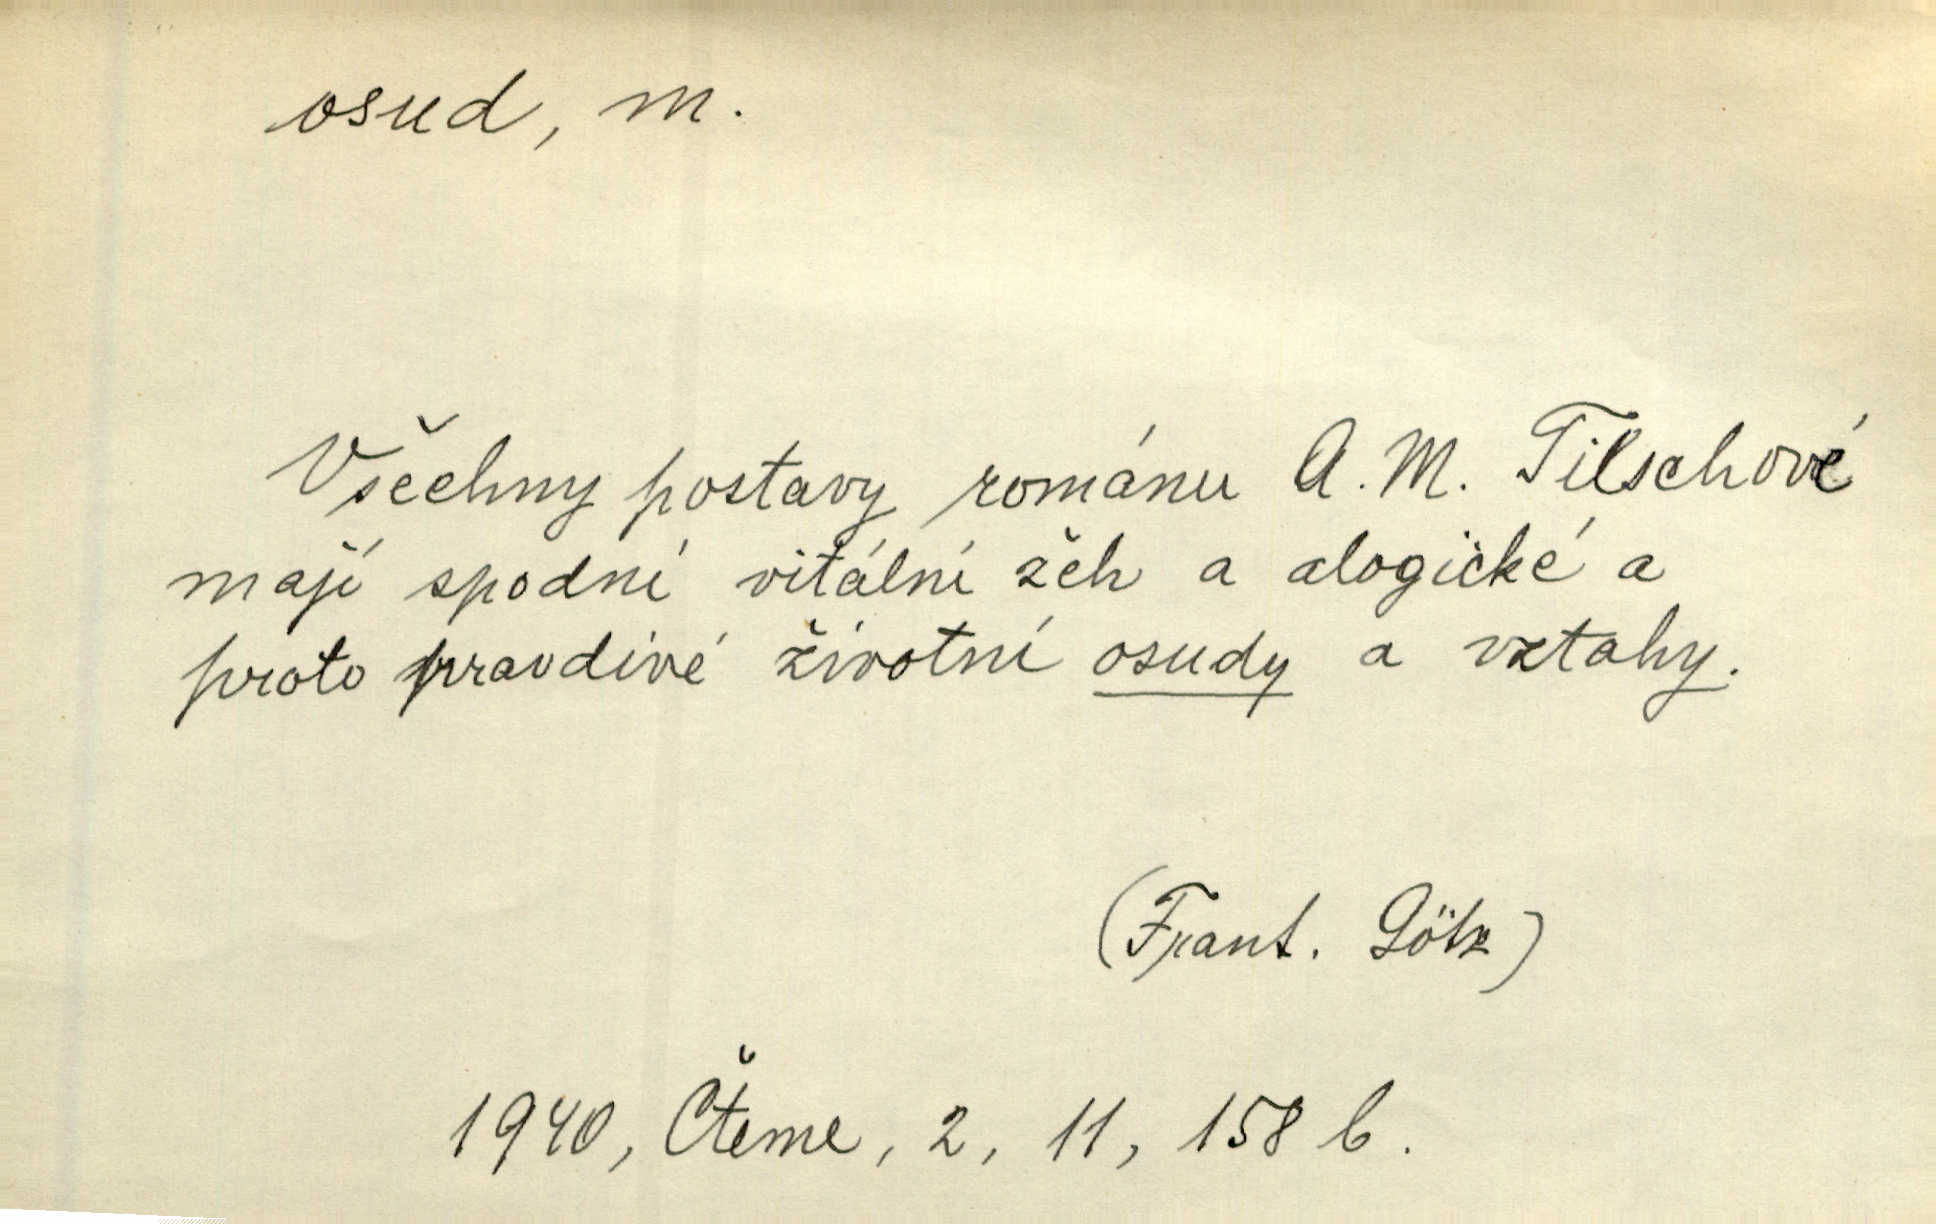 osud, m.
Všechny postavy románu A. M. Tilschové
mají spodní vitální žeh a alogické a
proto pravdivé životní osudy a vztahy.
(Frant. Götz)
1940, Čteme, 2, 11, 158 b.